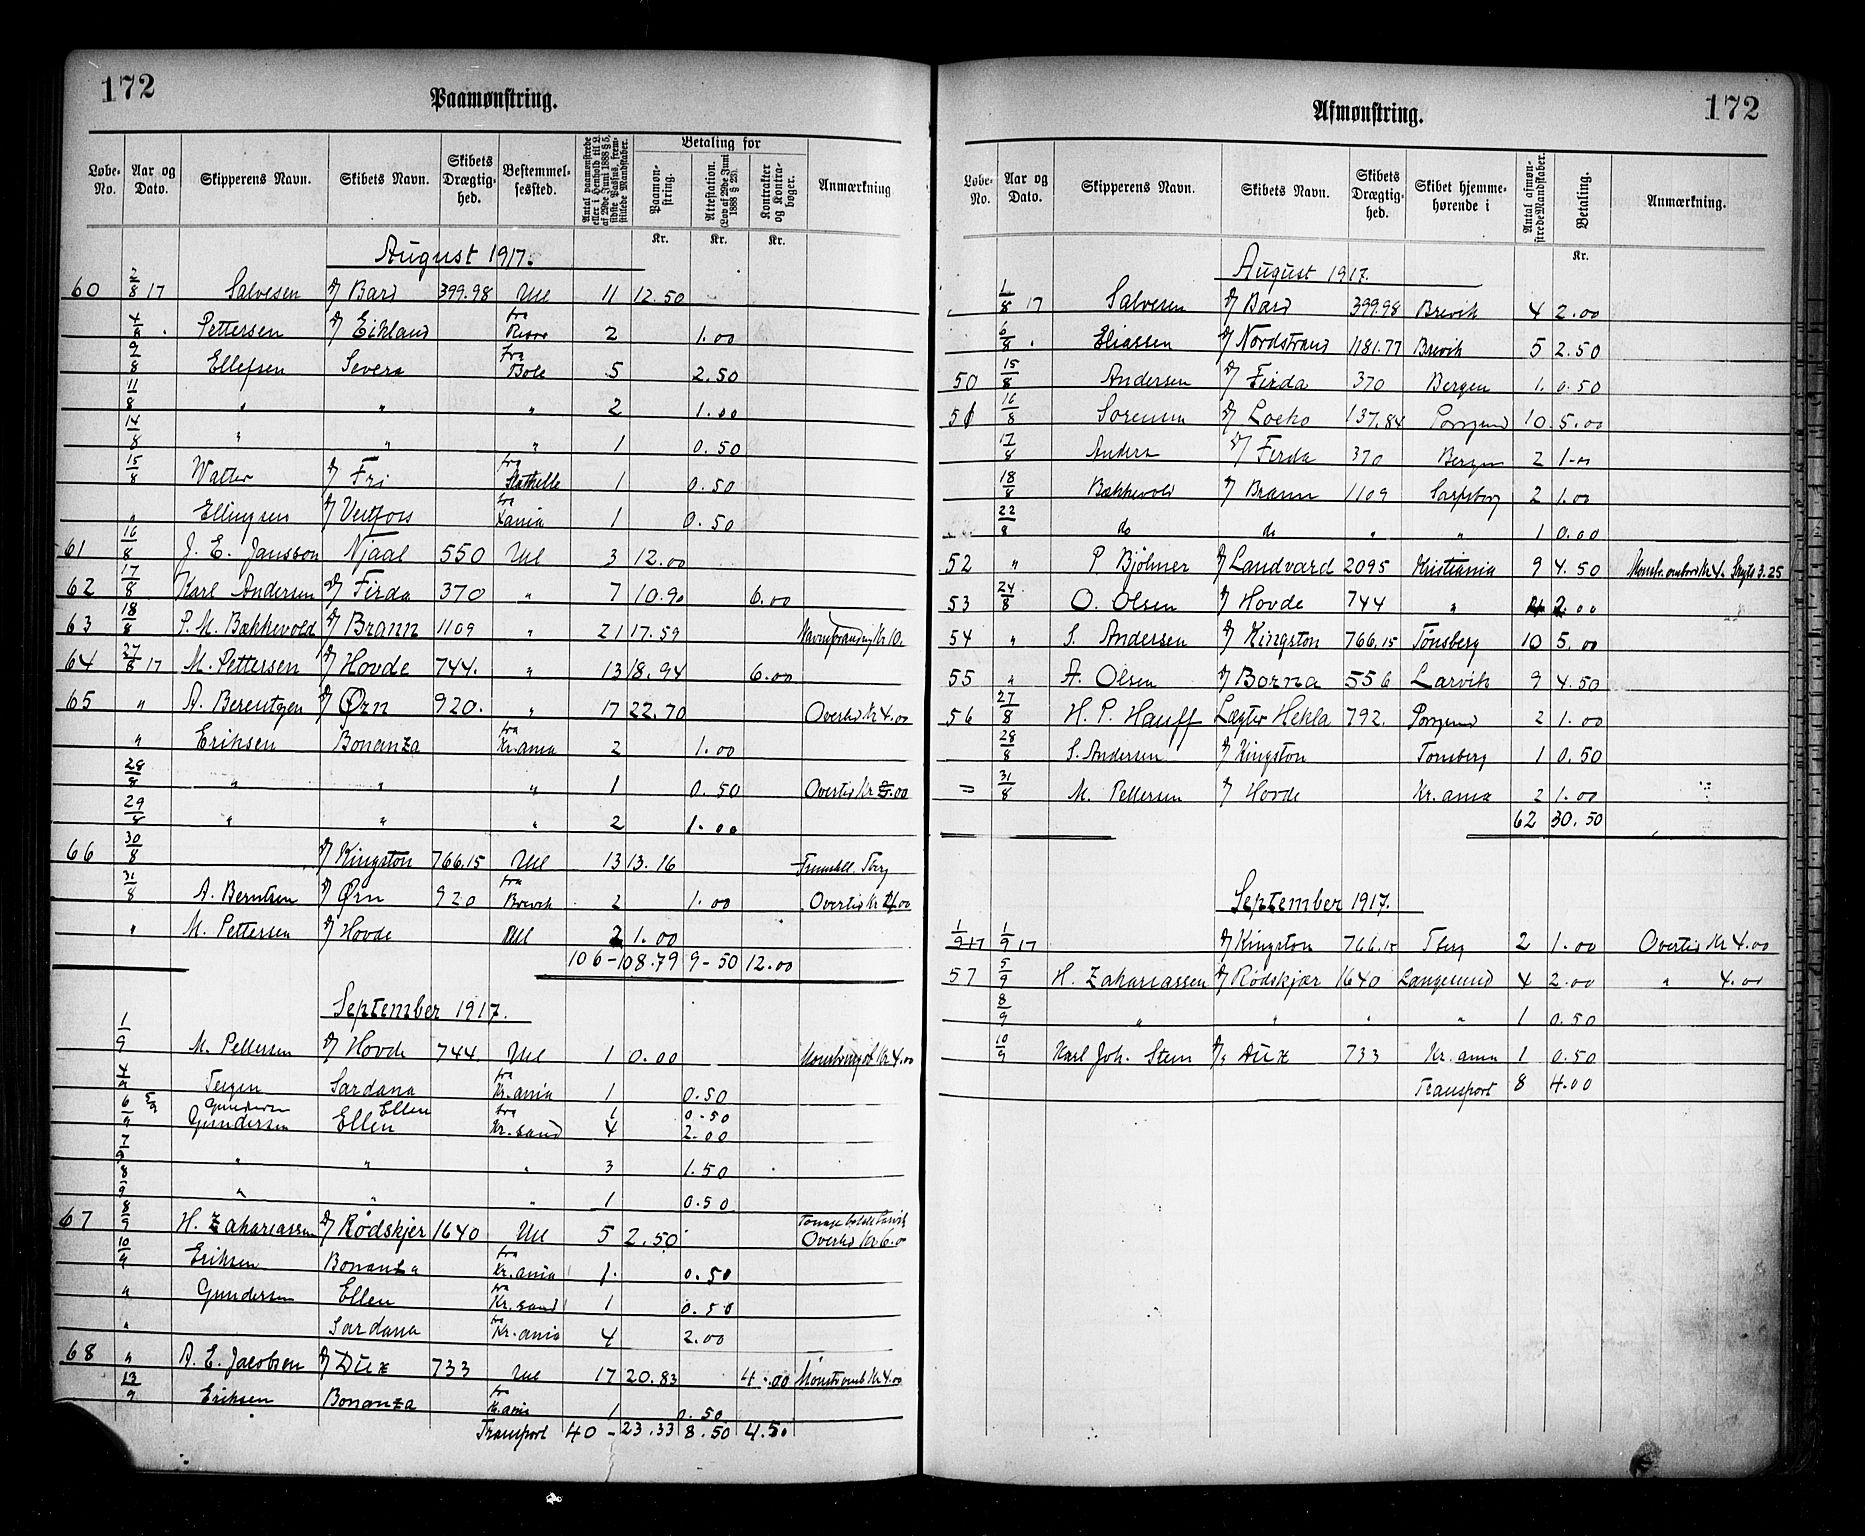 172
Paamønstring.
Løbe-No. Aar og Dato. Skipperens Navn. Skibets Navn. Skibets Drægtig-hed. Bestemmel-sessted. Betaling for Paamøn-string. Attestation. (Lov af 29de Juni 1888 § 23). Kontrakter og Kontra-bøger. Anmærkning
Kr. Kr. Kr.
August 1917.
60 2/8 17 Salvesen D/ Bard 399.98 Ul 11 12.50
4/8 . Pettersen D/ Eikland fra 2 1.00
9/8 Ellefsen Severa fra Bole 5 2.50
11/8 " " " 2 1.00
14/8 " " " 1 0.50
15/8 Walter D/ Fri fra Stathelle 1 0.50
" Ellingsen D/ Vestfoss fra Kania 1 0.50
61 16/8 J. E. Jansson Njaal 550 Ul 3 12.00
62 17/8 Karl Andersen D/ Firda 370 " 7 10.90 6.00
63 18/8 P. M. Bækkevold D/ Brann 1109 " 21 17.59
64 27/8 17 M. Pettersen D/ Hovde 744. " 13 18.94 6.00
65 " A. Berentzen D/ Ørn 920. " 17 22.70 Overtid Kr 4.00
" Eriksen Bonanza fra Kr.ania 2 1.00
28/8 " " " 1 0.50 Overtid Kr .00
29/8 " " " 2 1.00
66 30/8 D/ Kingston 766.15 Ul 13 13.16
31/8 A. Berntsen D/ Ørn 920 fra Brevik 2 1.00 Overtid Kr 4.00
" M. Pettersen D/ Hovde Ul 2 1.00
106 - 108.79 9-50 12.00
September 1917.
1/9 M. Pettersen D/ Hovde 744. Ul 1 0.00 Kr 4.00
4/9 Tergen Sardana fra Kr.ania 1 0.50
5/9 Gundersen Ellen 1 0.50
6/9 Gundersen Ellen fra Kr.sand 4 2.00
7/9 " " " 3 1.50
8/9 " " " 1 0.50
67 8/9 H. Zakariassen D/ Rødskjer 1640 Ul 5 2.50 Overtid Kr 6.0
10/9 Eriksen Bonanza fra Kr.ania 1. 0.50
" Gundersen Ellen fra Kr.sand 1 0.50
" Sardana fra Kr.ania 4 2.00
68 " A. E. Jacobsen D/ Dux 733 Ul 17 20.83 4.00 Mønst omb Kr 4.00
13/9 Eriksen Bonanza fra Kr.ania 1 0.50
Transport 40 - 23.33 8.50 4.50
172
Afmønstring.
Løbe-No. Aar og Dato. Skipperens Navn. Skibets Navn. Skibets Drægtig-hed. Skibet hjemme-hørende i Antal afmøn-strede Mandskaber. Betaling. Anmærkning.
Kr.
August 1917.
1/8 17 Salvesen D/ Bard 399.98 Brevik 4 2.00
6/8 . Eliassen D/ Nordstrand 1181.77 Brevik 5 2.50
50 15/8 Andersen D/ Firda 370 Bergen 1. 0.50
51 16/8 Sorensen D/ Loeko 137.84 Porsgrund 10 5.00
17/8 Anders D/ Firda 370 Bergen 2 1.00
18/8 Bækkevold D/ Brann 1109 Sarpsborg 2 1.00
22/8 do do " " 1 0.00
52 " P. Bjølmer D/ Landvard 2095 Kristiania 9 4.50 Mønstr. ombord Kr 4. Skyds 3.25
53 24/8 O. Olsen D/ Hovde 744 " 4 2.00
54 " S. Andersen D/ Kingston 766.15 Tönsberg 10 5.00
55 " A. Olsen D/ Borna 556 Larvik 9 4.50
56 27/8 H. P. Hauff Lægter Hekla 792. Porsgrund 2 1.00
28/8 S. Andersen D/ Kingston Tonsberg 1 0.50
= 31/8 M. Pettersen D/ Hovde Kr.ania 2 1.00
62 30.50
September 1917.
1/9 17 1/9 17 D/ Kingston 766.15 Tberg 2 1.00 Overtid Kr 4.00
57 5/9 H. Zakariassen D/ Rødskjær 1640 Langesund 4 2.00 " 4.00
8/9 " " " " 1 0.50
10/9 Karl Joh. Sten D/s Dux 733 Kr.ania 1 0.50
Transport 8 4.00